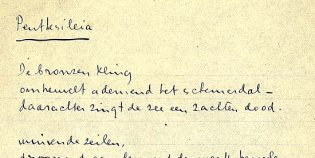 Penthesileia
De bronzen kling
omhemelt ademend het schemerdal –
daarachter zingt de zee een zachten dood.
wuivende zeilen,